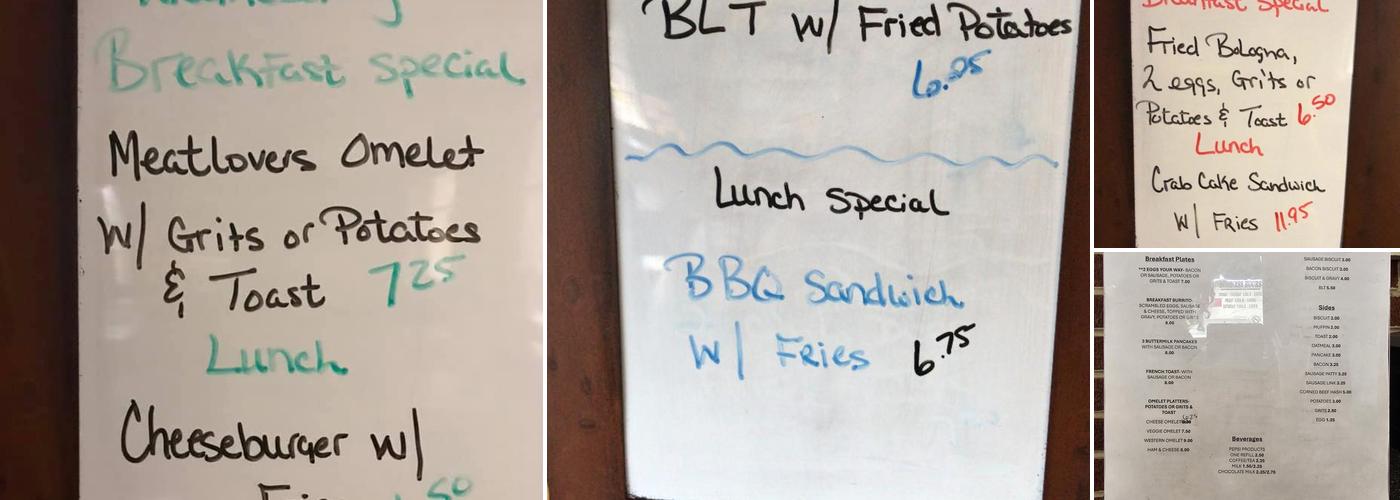 Breakfast special
Meatlovers Omelet
W/ Grits or Potatoes
& Toast 7 25
Lunch
Cheeseburger w/
BLT W/ Fried Potatoes
6.95
Lunch special
BBQ Sandwich
W/ Fries 6.75
Breakfast Special
Fried Bologna,
2 eggs, Grits or
Potatoes & Toast 6.50
Lunch
Crab Cake Sandwich
W/ Fries 11.95
Breakfast Plates
**2 EGGS YOUR WAY- BACON
OR SAUSAGE, POTATOES OR
GRITS & TOAST 7.00
BREAKFAST BURRITO-
SCRAMBLED EGGS, SAUSAGE
& CHEESE, TOPPED WITH
GRAVY, POTATOES OR GRITS
8.00
3 BUTTERMILK PANCAKES
WITH SAUSAGE OR BACON
8.00
FRENCH TOAST- WITH
SAUSAGE OR BACON
8.00
OMELET PLATTERS-
POTATOES OR GRITS &
TOAST
CHEESE OMELET
VEGGIE OMELET 7.50
WESTERN OMELET 9.00
HAM & CHEESE 8.00
SAUSAGE BISCUIT 3.00
BACON BISCUIT 3.00
BISCUIT & GRAVY 4.00
BLT 5.50
Sides
BISCUIT 2.00
MUFFIN 2.00
TOAST 2.00
OATMEAL 3.00
PANCAKE 3.00
BACON 3.25
SAUSAGE PATTY 3.25
SAUSAGE LINK 3.25
CORNED BEEF HASH 5.00
POTATOES 3.00
GRITS 2.50
EGG 1.25
Beverages
PEPSI PRODUCTS
ONE REFILL 2.50
COFFEE/TEA 2.25
MILK 1.50/2.25
CHOCOLATE MILK 2.25/2.75